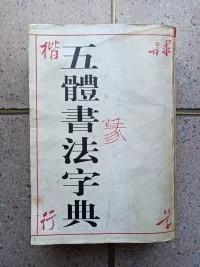 五體書法字典
篆
隸
楷
草
行